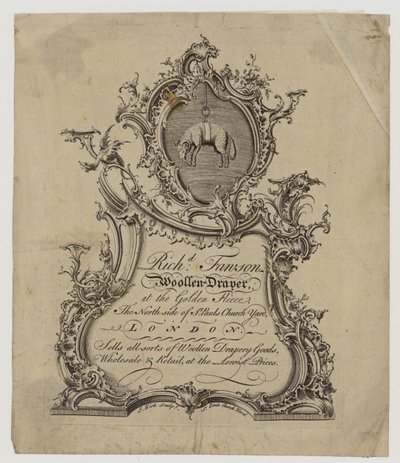 Rich.d Fawson
Woollen-Draper,
at the Golden Fleece,
The North side of St. Pauls Church Yard
LONDON.
Sells all sorts of Woollen Drapery Goods,
Wholesale & Retail, at the Lowest Prices.
J. Kirk Sculp. St. Pauls Church Yard